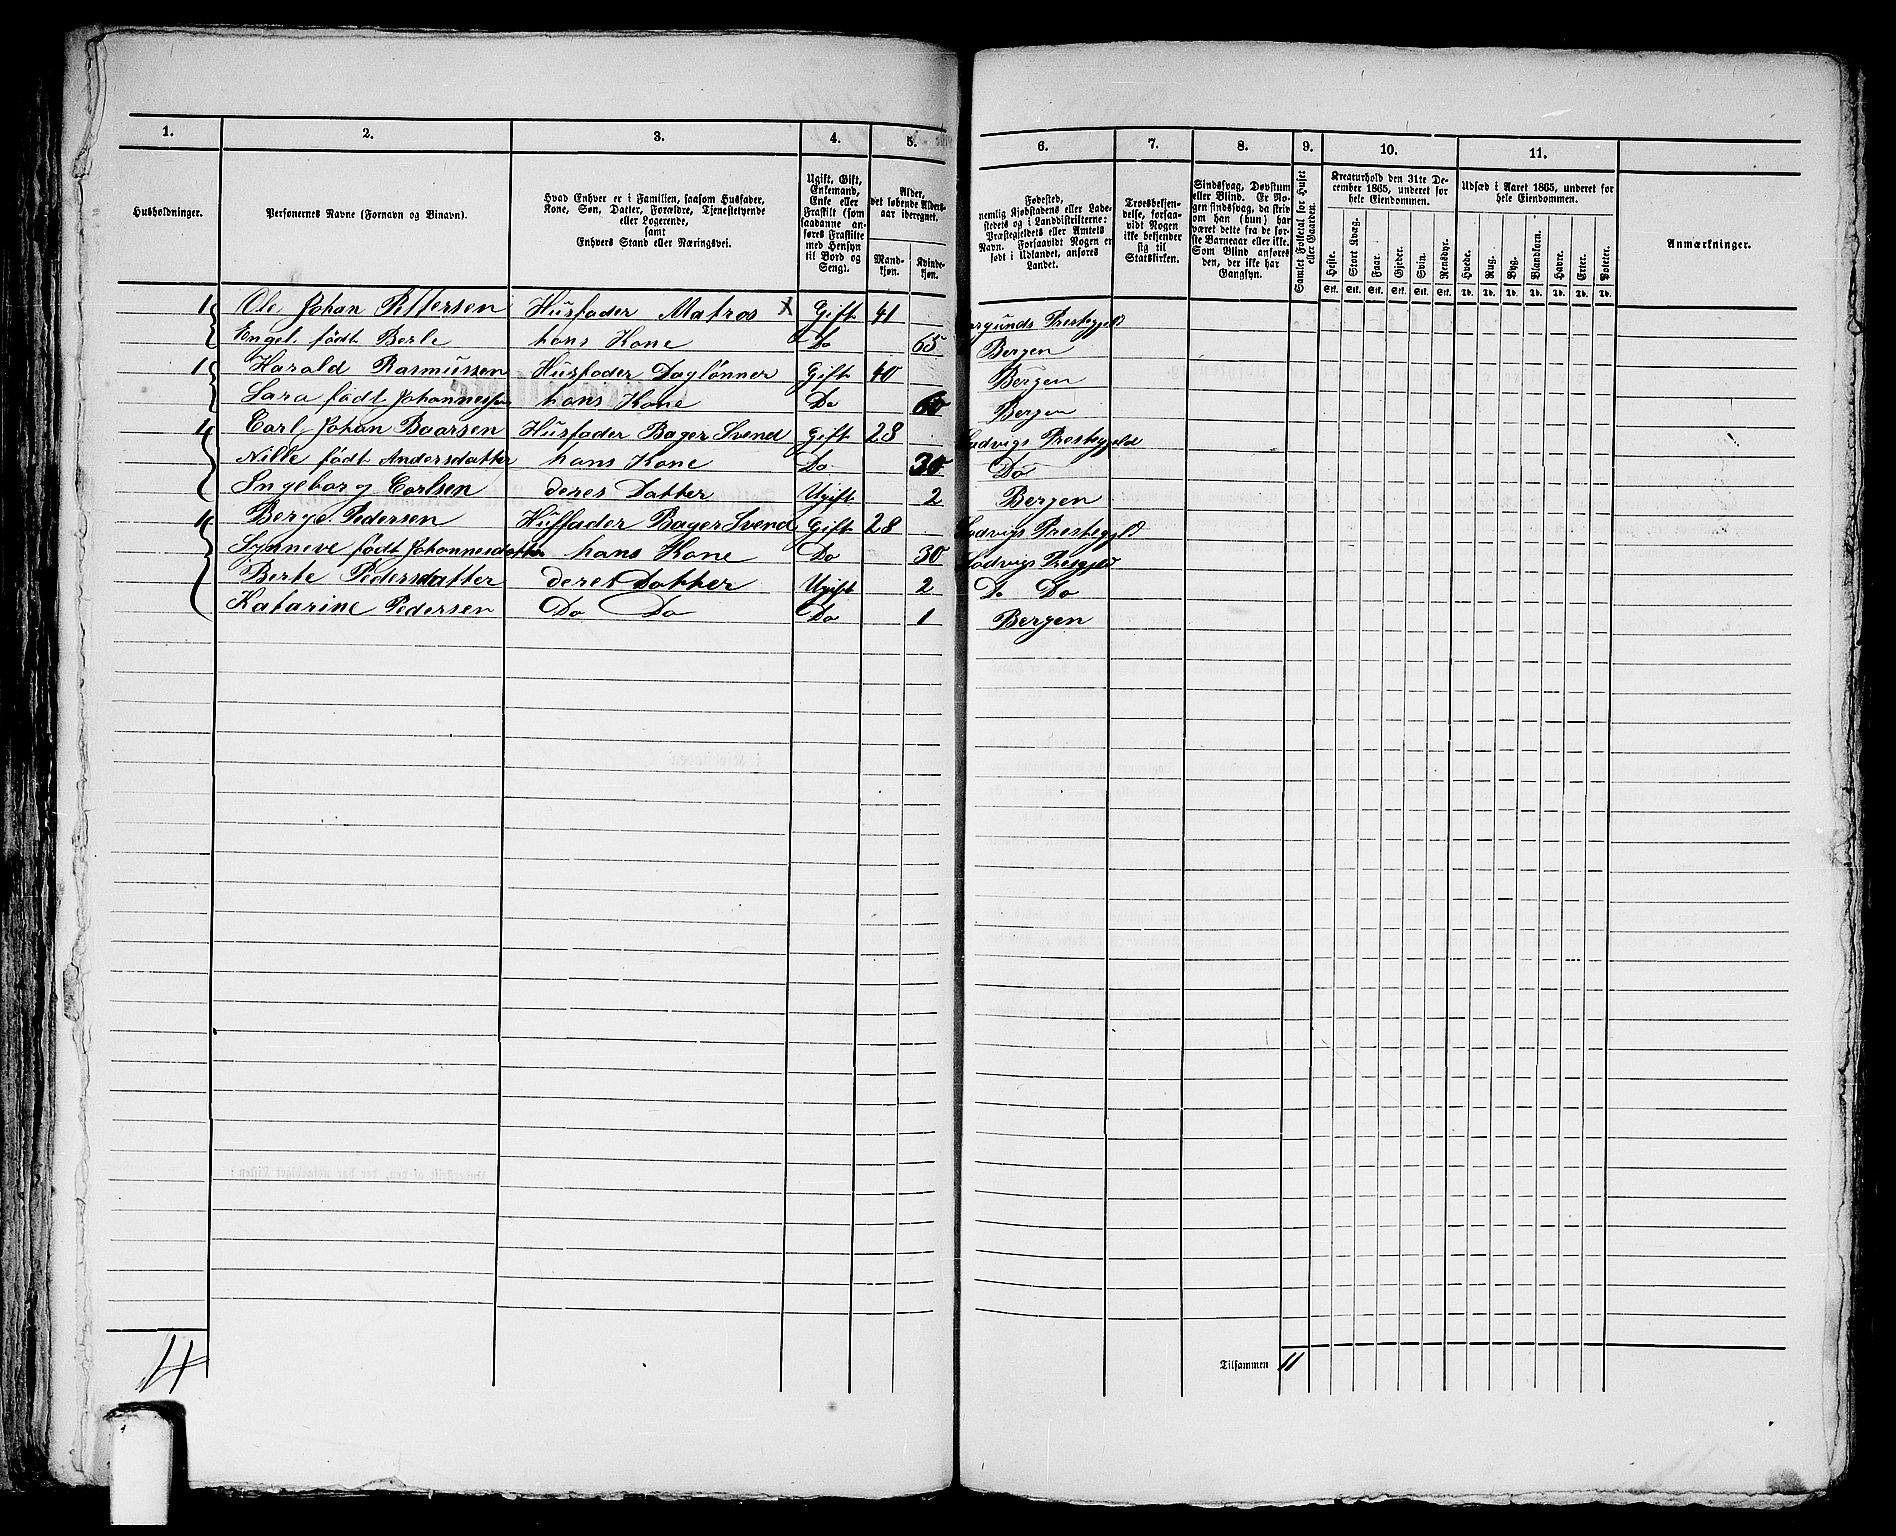 1. 2. 3. 4. 5. 6. 7. 8. 9. 10. 11.
Husholdninger.
Personernes Navne (Fornavn og Binavn).
Hvad Enhver er i Familien, saasom Husfader,
Kone, Søn, Datter, Forældre, Tjenestetyende
eller Logerende,
samt
Enhvers Stand eller Næringsvei.
Ugift, Gift,
Enkemand,
Enke eller
Fraskilt (som
saadanne an-
føres Fraskilte
med Hensyn
til Bord og
Seng).
Alder,
det løbende Alders-
aar iberegnet.
Mand-
kjøn.
Kvinde-
kjøn.
Fødested,
nemlig Kjøbstadens eller Lade-
stedets og i Landdistrikterne:
Præstegjeldets eller Amtets
Navn. Forsaavidt Nogen er
født i Udlandet, anføres
Landet.
Troesbekjen-
delse, forsaa-
vidt Nogen
ikke bekjender
sig til
Statskirken.
Sindssvag, Døvstum
eller Blind. Er No-
gen sindssvag, da skriv
om han (hun) har
været dette fra de før-
ste Barneaar eller ikke.
Som Blind anføres
den, der ikke har
Gangsyn.
Samlet Folketal for Huset
eller Gaarden.
Kreaturhold den 31te De-
cember 1865, underet for
hele Eiendommen.
Heste. Stort Kvæg. Faar. Gjeder. Svin. Rensdyr.
Stk. Stk. Stk. Stk. Stk. Stk.
Udsæd i Aaret 1865, underet for
hele Eiendommen.
Hvede. Rug. Byg. Blandkorn. Havre. Erter. Poteter.
Td. Td. Td. Td. Td. Td. Td.
Anmærkninger.
1 Ole Johan Pettersen Husfader Matros x Gift 41 Prestegjeld
Engel født Berle hans Kone Do 65 Bergen
1 Harald Rasmussen Husfader Daglønner Gift 40 Bergen
Sara født Johannessen hans Kone Do 60 Bergen
1 Carl Johan Baarsen Husfader Bager Svend Gift 28 Prestegjeld
Nille født Andersdatter hans Kone Do 30 Do
Ingeborg Carlsen deres Datter Ugift 2 Bergen
1 Berge Pedersen Husfader Bager Svend Gift 28 Prestegjeld
Synneve født Johannesdatter hans Kone Do 30
Berte Pedersdatter deres Datter Ugift 2 Do Do
Katarine Pedersen Do Do Do 1 Bergen
4
Tilsammen 11